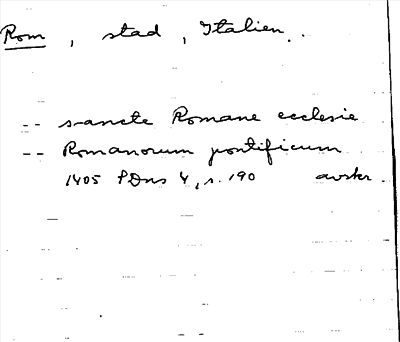 Rom, stad, Italien.
-- sancte Romane ecclesie
-- Romanorum pontificum
1405 PDns 4, s. 190 avskr.